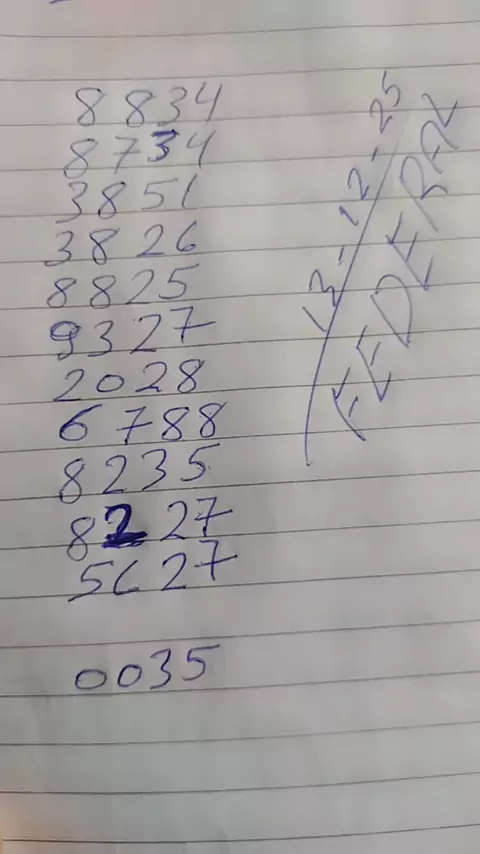 8834
8734
3851
3826
8825
9327
2028
6788
8235
8227
5627
0035
13-12-25
FEDERAL